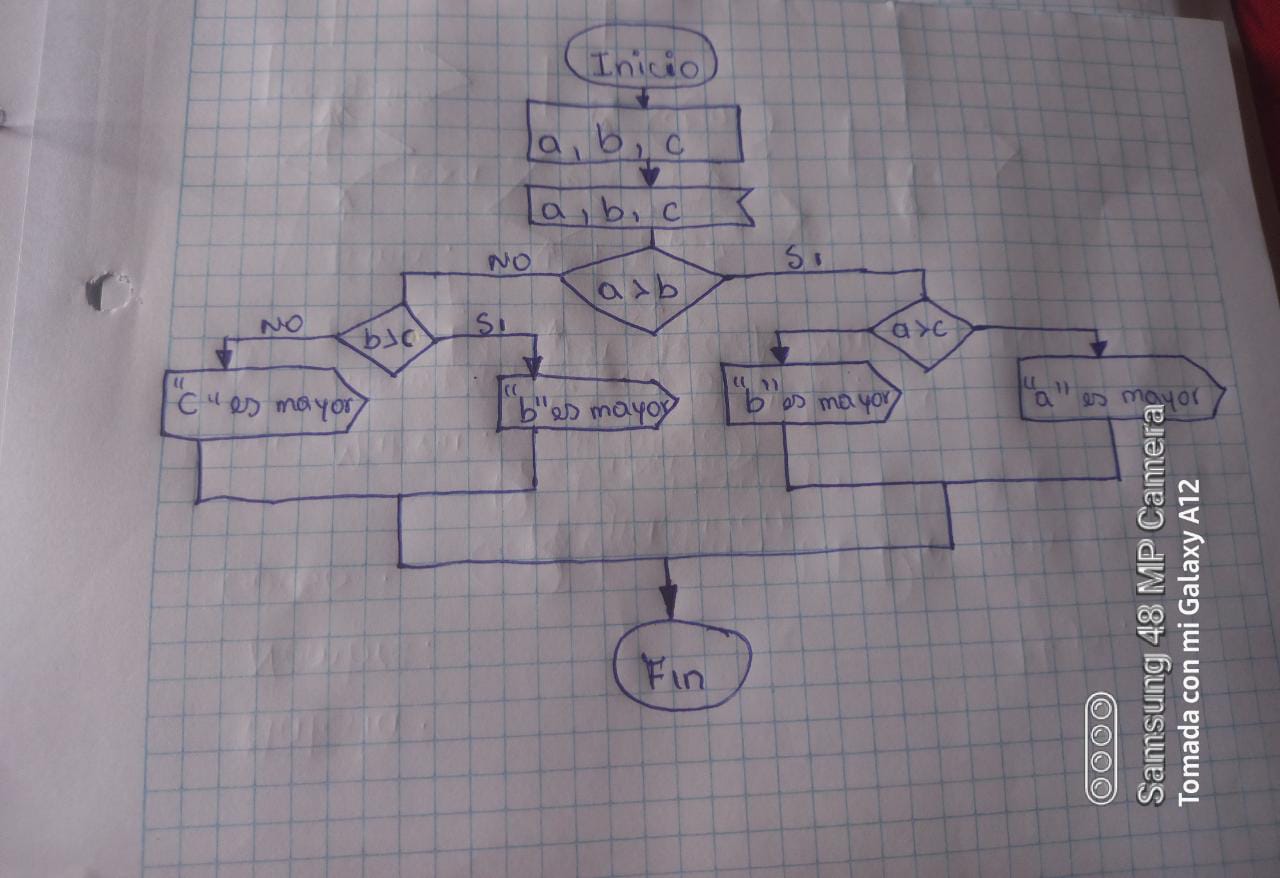 Inicio
a, b, c
a, b, c
NO
a > b
Si
NO
b>c
Si
a>c
"c" es mayor
"b" es mayor
"b" es mayor
"a" es mayor
Fin
Samsung 48 MP Camera
Tomada con mi Galaxy A12